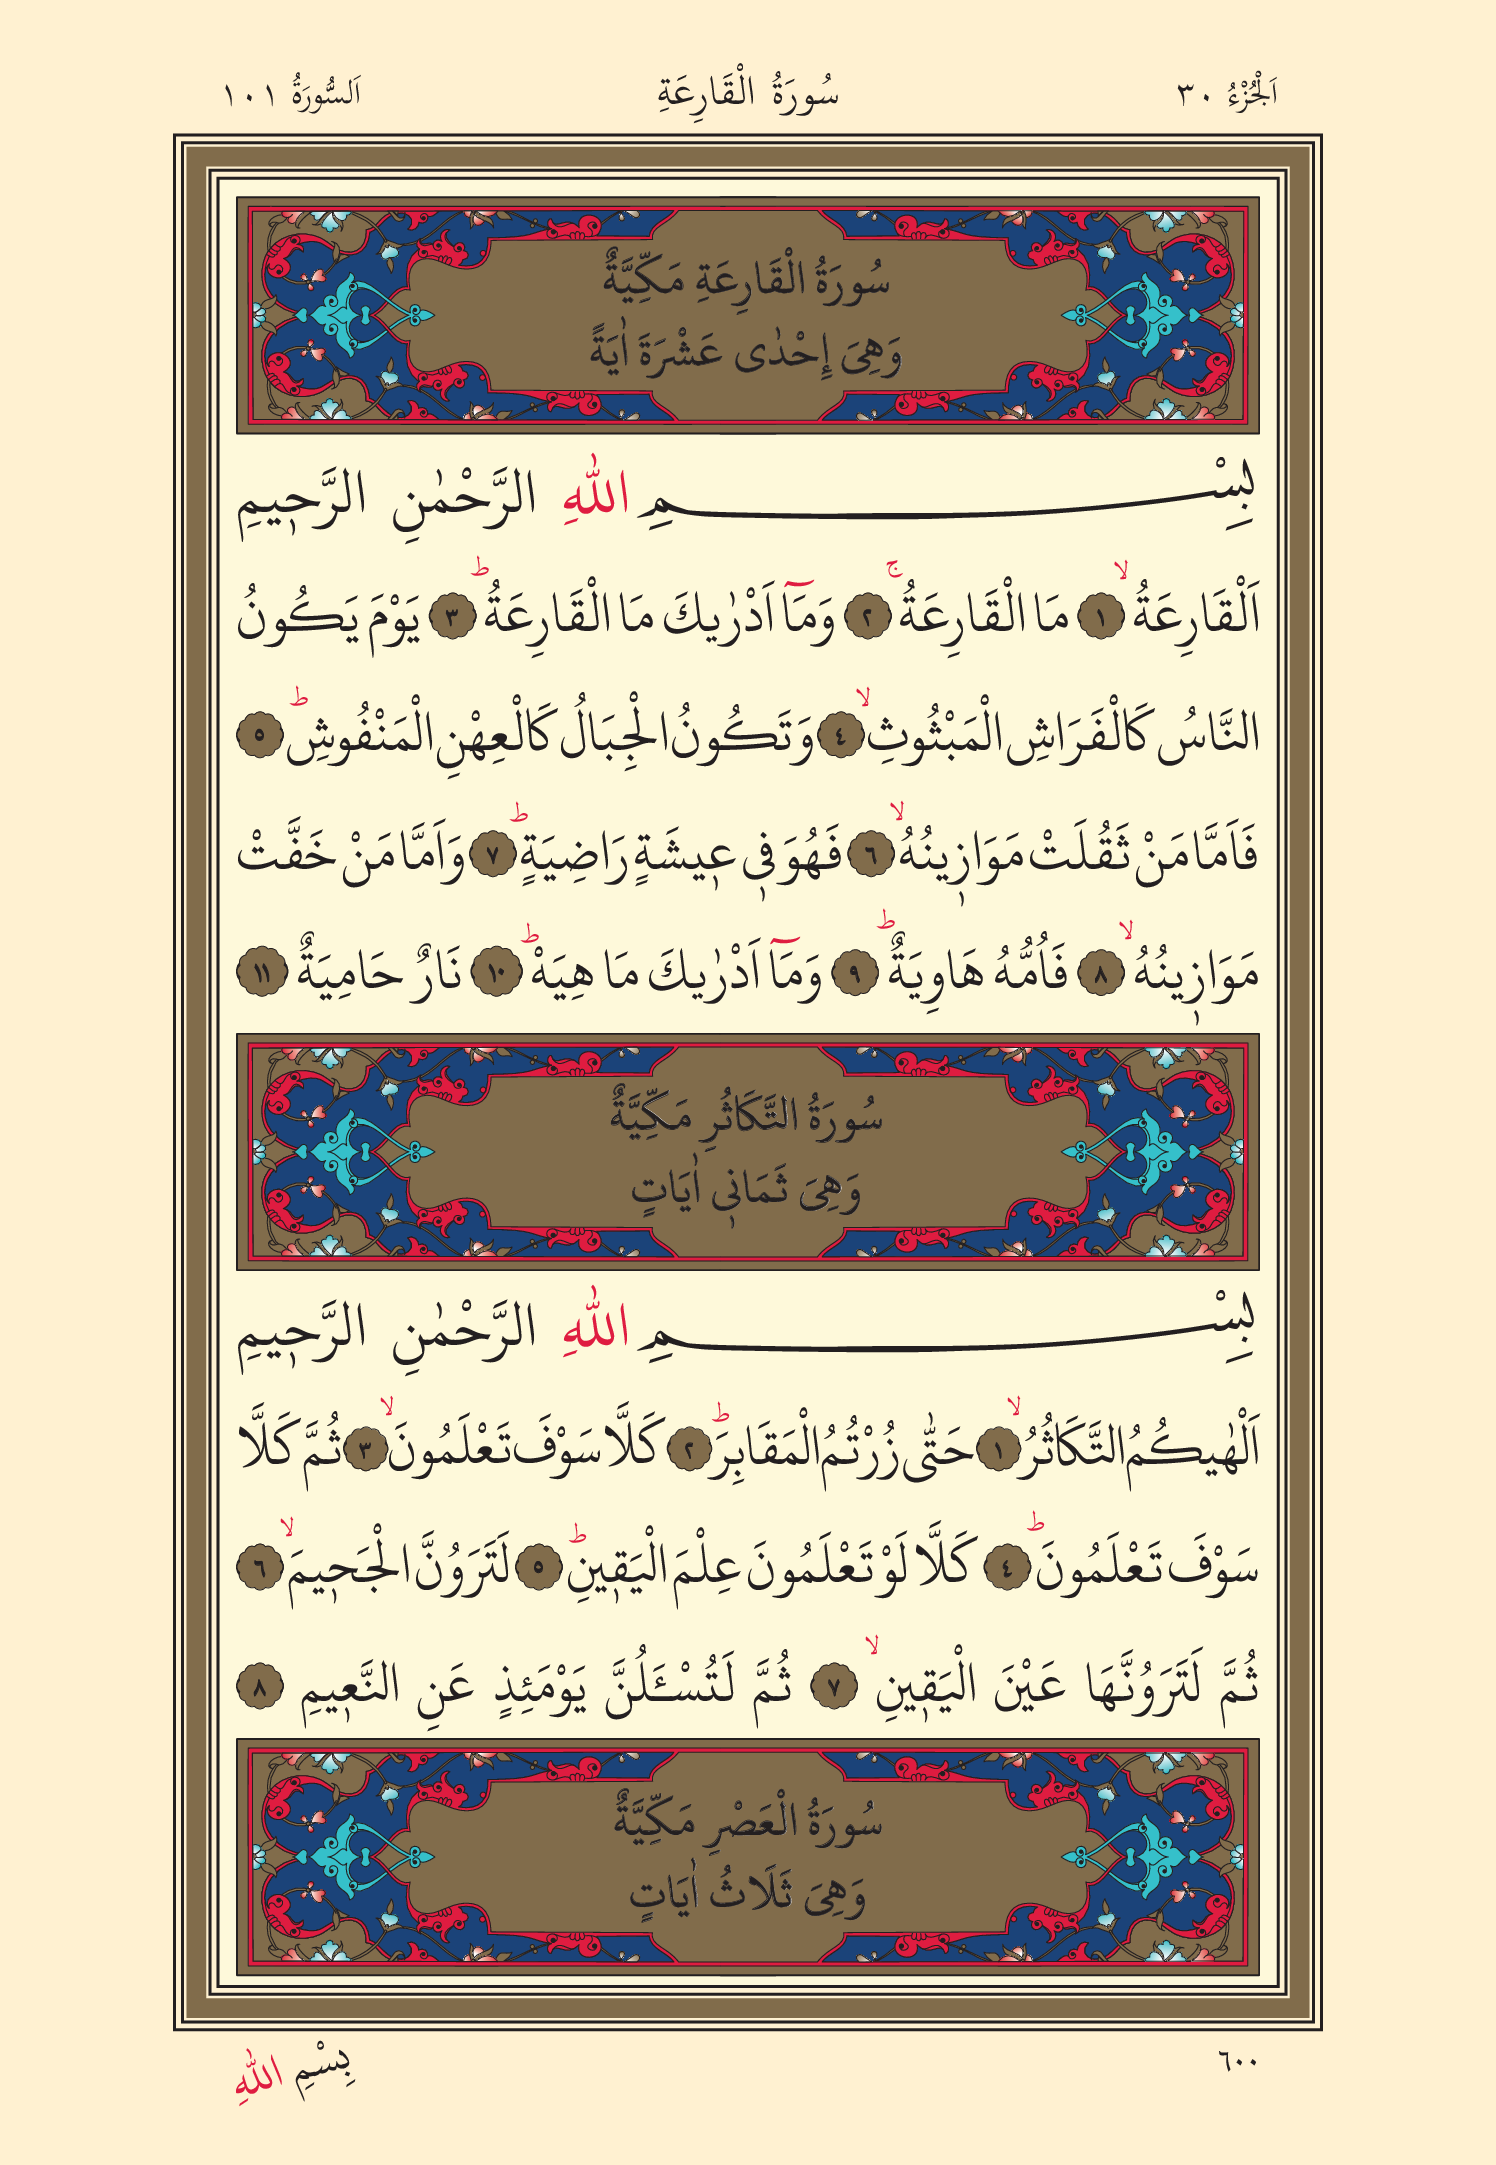 اَلْجُزْءُ ٣٠ سُورَةُ الْقَارِعَةِ اَلسُّورَةُ ١٠١
سُورَةُ الْقَارِعَةِ مَكِّيَّةٌ
وَهِىَ إِحْدٰى عَشْرَةَ اٰيَةً
بِسْمِ اللّٰهِ الرَّحْمٰنِ الرَّح۪يمِ
اَلْقَارِعَةُۙ ١ مَا الْقَارِعَةُۚ ٢ وَمَٓا اَدْرٰيكَ مَا الْقَارِعَةُۜ ٣ يَوْمَ يَكُونُ
النَّاسُ كَالْفَرَاشِ الْمَبْثُوثِۙ ٤ وَتَكُونُ الْجِبَالُ كَالْعِهْنِ الْمَنْفُوشِۜ ٥
فَاَمَّا مَنْ ثَقُلَتْ مَوَاز۪ينُهُۙ ٦ فَهُوَ ف۪ي ع۪يشَةٍ رَاضِيَةٍۜ ٧ وَاَمَّا مَنْ خَفَّتْ
مَوَاز۪ينُهُۙ ٨ فَاُمُّهُ هَاوِيَةٌۜ ٩ وَمَٓا اَدْرٰيكَ مَا هِيَهْۜ ١٠ نَارٌ حَامِيَةٌ ١١
سُورَةُ التَّكَاثُرِ مَكِّيَّةٌ
وَهِىَ ثَمَان۪ى اٰيَاتٍ
بِسْمِ اللّٰهِ الرَّحْمٰنِ الرَّح۪يمِ
اَلْهٰيكُمُ التَّكَاثُرُۙ ١ حَتّٰى زُرْتُمُ الْمَقَابِرَۜ ٢ كَلَّا سَوْفَ تَعْلَمُونَۙ ٣ ثُمَّ كَلَّا
سَوْفَ تَعْلَمُونَۜ ٤ كَلَّا لَوْ تَعْلَمُونَ عِلْمَ الْيَق۪ينِۜ ٥ لَتَرَوُنَّ الْجَح۪يمَۙ ٦
ثُمَّ لَتَرَوُنَّهَا عَيْنَ الْيَق۪ينِۙ ٧ ثُمَّ لَتُسْـَٔلُنَّ يَوْمَئِذٍ عَنِ النَّع۪يمِ ٨
سُورَةُ الْعَصْرِ مَكِّيَّةٌ
وَهِىَ ثَلَاثُ اٰيَاتٍ
٦٠٠ بِسْمِ اللّٰهِ